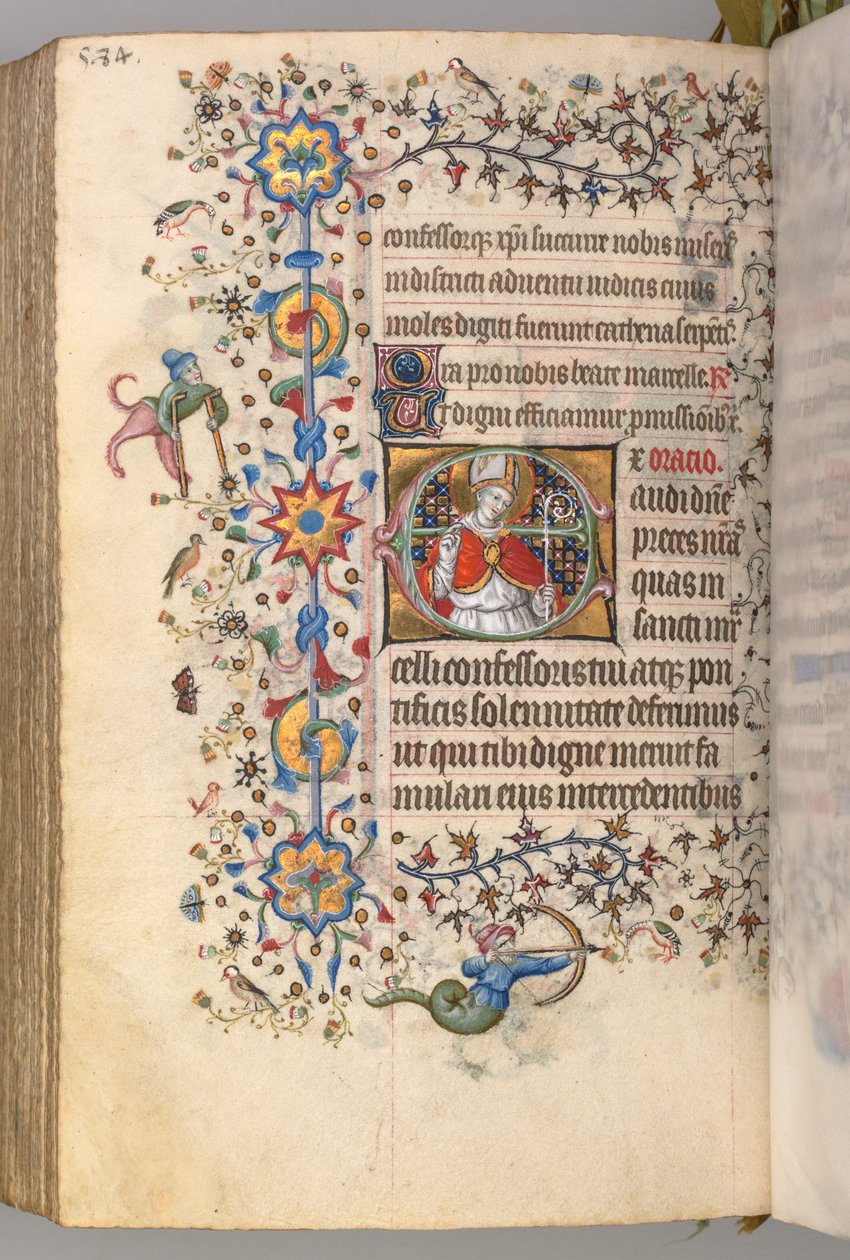 584.
confessorq xpi succurre nobis miseris
in districti adventu iudicis cuius
moles digiti fuerunt cathena serpentis.
Ora pro nobis beate marcelle. R
Ut digni efficiamur pmissionibus x.
x oracio.
Exaudi dne
preces nras
quas in
sancti mar
celli confessoris tui atq pon
tificis solennitate deferimus
ut qui tibi digne meruit fa
mulari eius intercedentibus